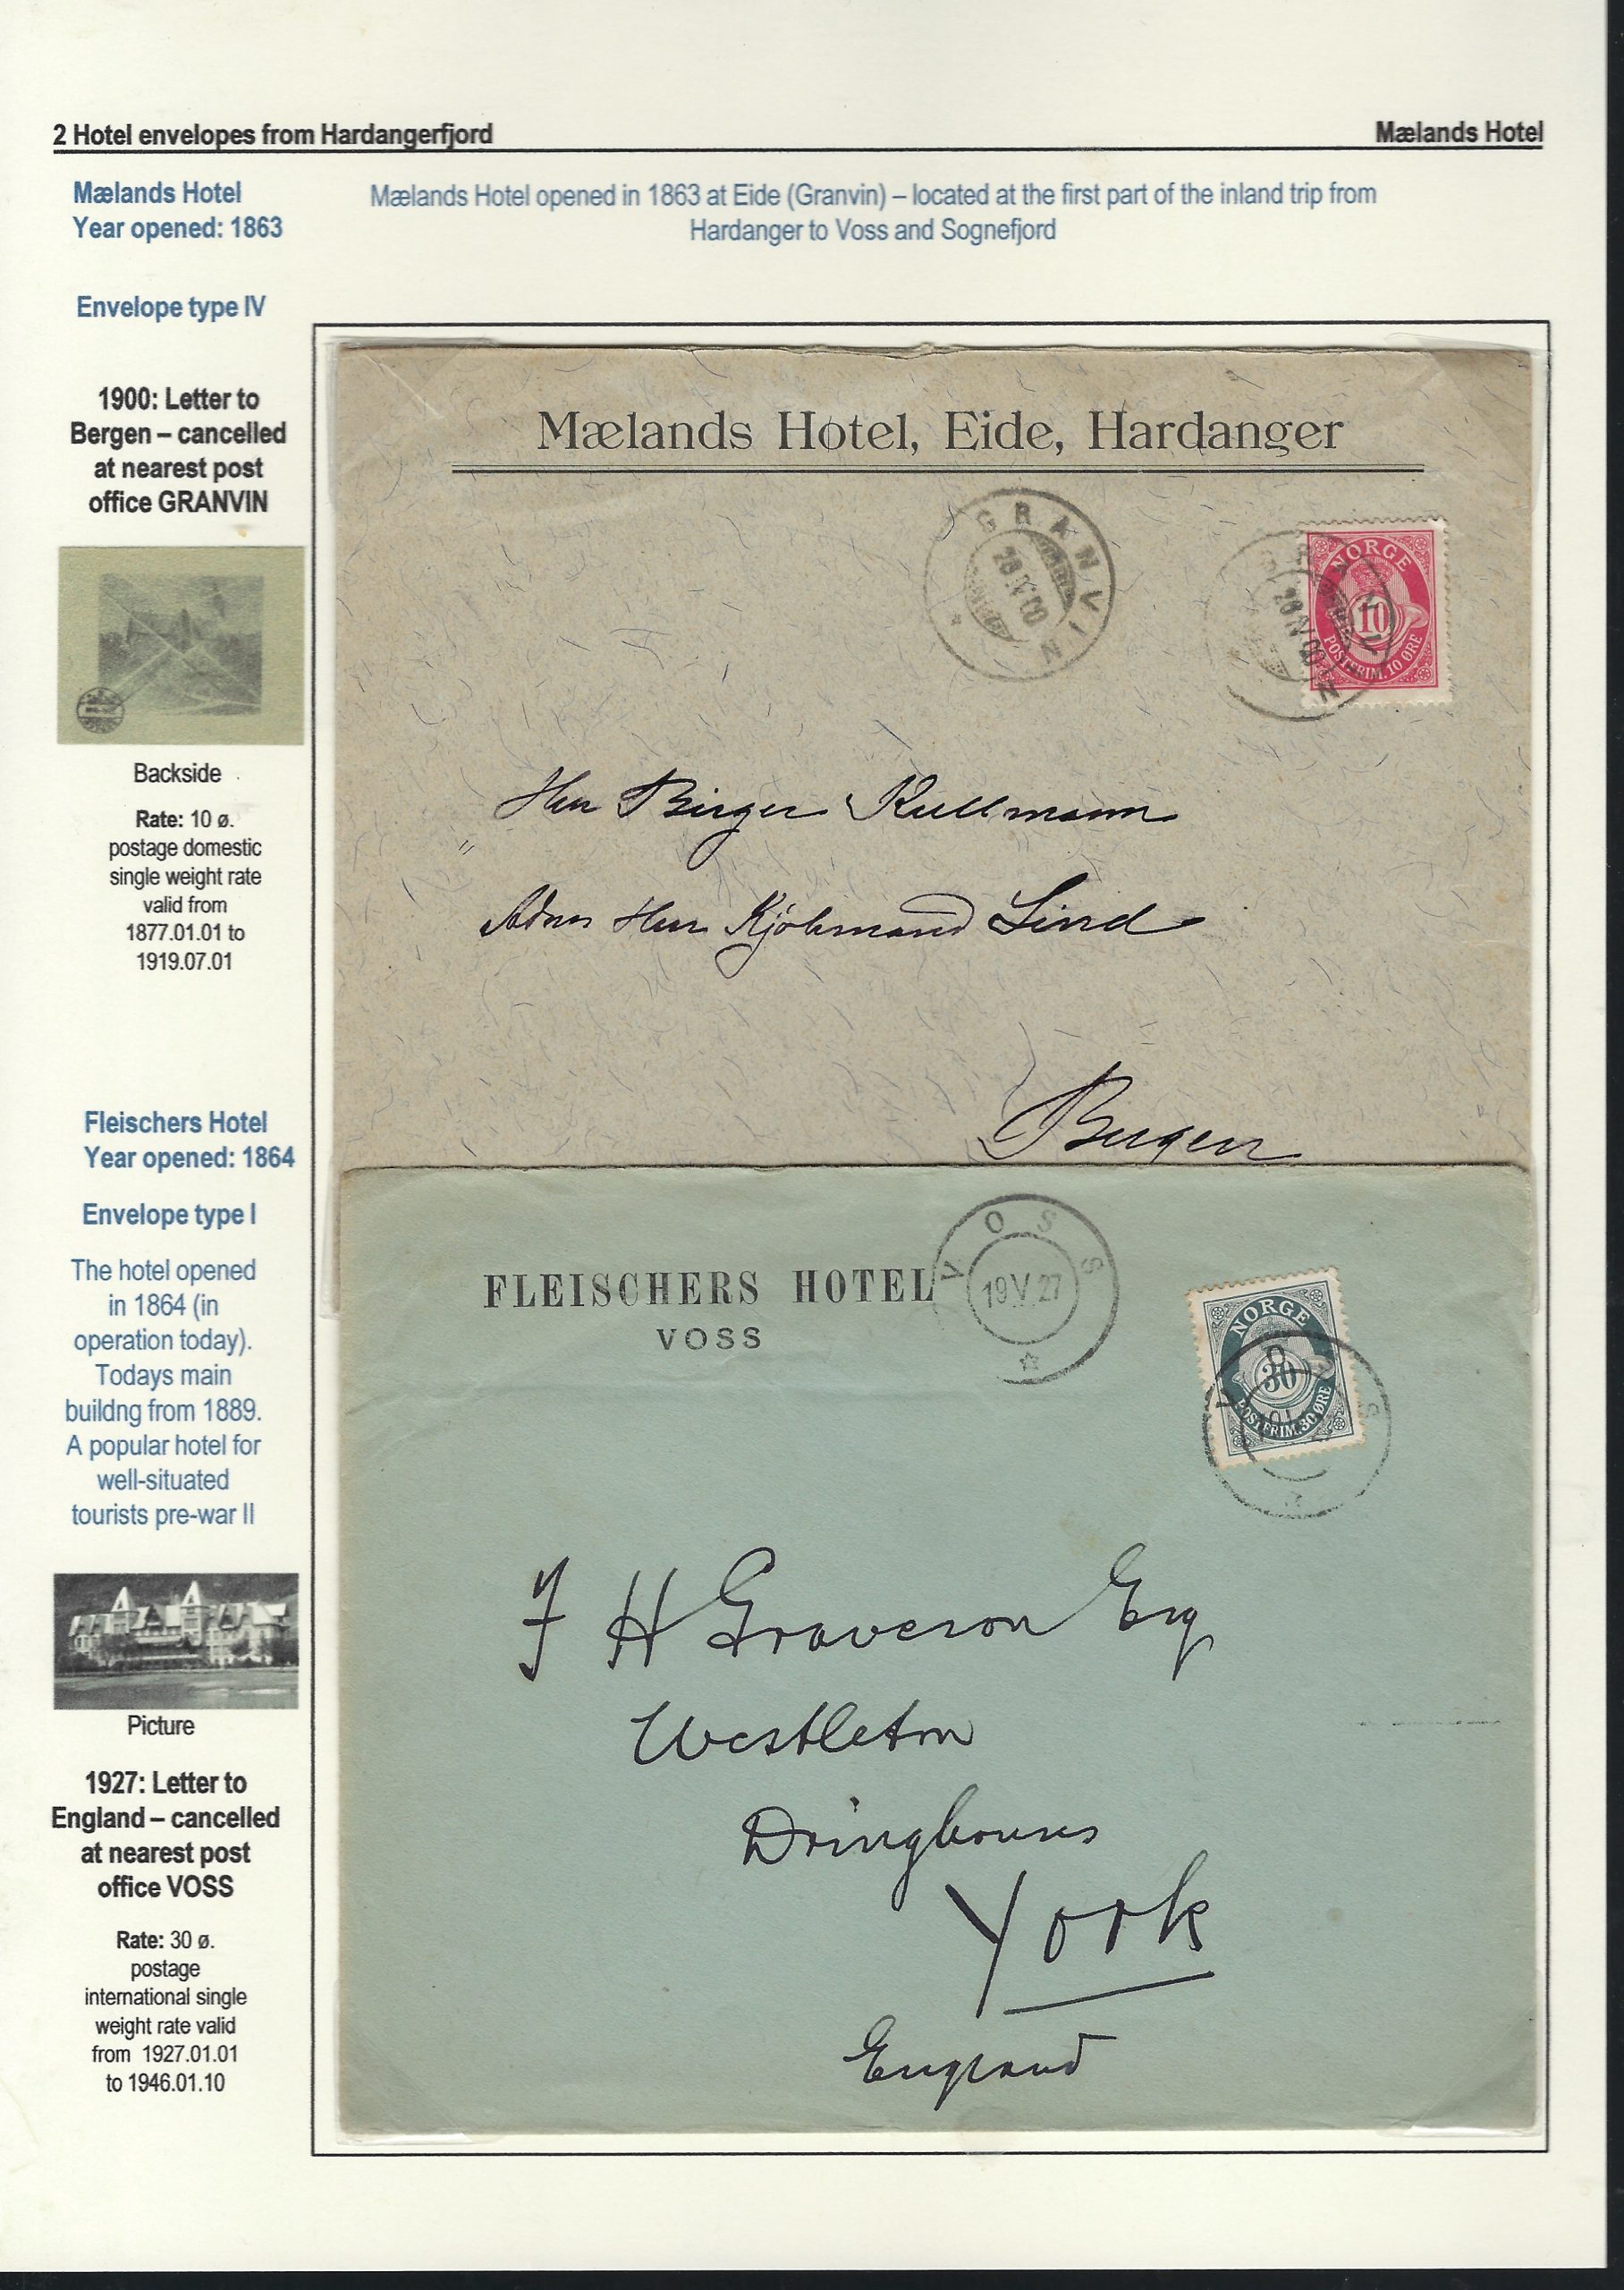 2 Hotel envelopes from Hardangerfjord
Mælands Hotel
Mælands Hotel
Year opened: 1863
Mælands Hotel opened in 1863 at Eide (Granvin) – located at the first part of the inland trip from
Hardanger to Voss and Sognefjord
Envelope type IV
1900: Letter to
Bergen – cancelled
at nearest post
office GRANVIN
Backside
Rate: 10 ø.
postage domestic
single weight rate
valid from
1877.01.01 to
1919.07.01
Mælands Hotel, Eide, Hardanger
GRANVIN
NORGE
10
POSTFRIM. 10 ØRE
Herr Birger Kullmann
Adrss Herr Kjøbmand Lind
Bergen
Fleischers Hotel
Year opened: 1864
Envelope type I
The hotel opened
in 1864 (in
operation today).
Todays main
buildng from 1889.
A popular hotel for
well-situated
tourists pre-war II
Picture
1927: Letter to
England – cancelled
at nearest post
office VOSS
Rate: 30 ø.
postage
international single
weight rate valid
from 1927.01.01
to 1946.01.10
FLEISCHERS HOTEL
VOSS
VOSS
19 V 27
NORGE
30
POSTFRIM. 30 ØRE
J H Graveson Esq
Westleton
Dringhouses
York
England